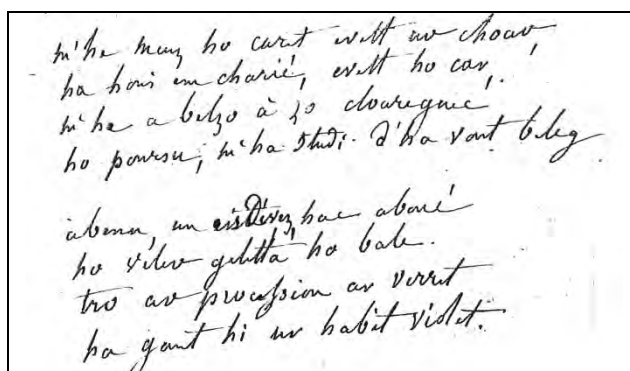 m'he meuz ho caret evell ar choar,
ha hoüi em charié, evell ho car,
m'he a belzo a zo cloareguie
ho poursu, m'ha studi. d'ha vont beleg
abenn, un eisdevez, hac aboué
ho veler gueltta ho bale.
tro ar procession ar verret
ha gant hi ur habit violet.